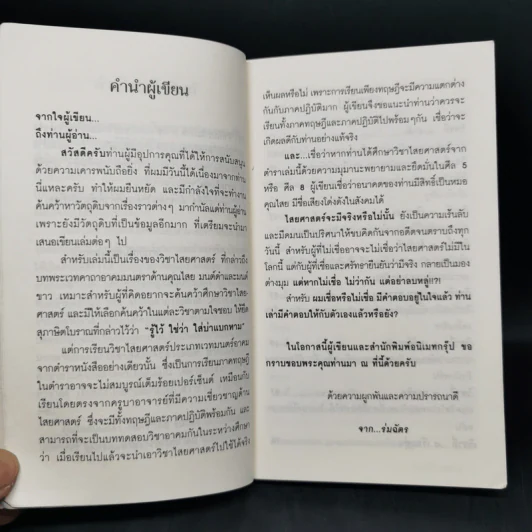 คำนำผู้เขียน
จากใจผู้เขียน...
ถึงท่านผู้อ่าน...
สวัสดีครับท่านผู้มีอุปการคุณที่ได้ให้การสนับสนุน
ด้วยความเคารพนับถือยิ่ง ที่ผมมีวันนี้ได้เนื่องมาจากท่าน
นี่แหละครับ ทำให้ผมยืนหยัด และมีกำลังใจที่จะทำงาน
ค้นคว้าหาวัตถุดิบจากเรื่องราวต่างๆ มากำนัลแด่ท่านผู้อ่าน
เพราะยังมีวัตถุดิบที่เป็นข้อมูลอีกมาก ที่เตรียมจะนำมา
เสนอเขียนเล่มต่อๆ ไป
สำหรับเล่มนี้เป็นเรื่องของวิชาไสยศาสตร์ ที่กล่าวถึง
บทพระเวทคาถาอาคมมนตราด้านคุณไสย มนต์ดำและมนต์
ขาว เหมาะสำหรับผู้ที่คิดอยากจะค้นคว้าศึกษาวิชาไสย-
ศาสตร์ และมีให้เลือกค้นคว้าในแต่ละวิชาตามใจชอบ ให้ยึด
สุภาษิตโบราณที่กล่าวไว้ว่า "รู้ไว้ ใช่ว่า ใส่บ่าแบกหาม"
แต่การเรียนวิชาไสยศาสตร์ประเภทเวทมนตร์อาคม
จากตำราหนังสืออย่างเดียวนั้น ซึ่งเป็นการเรียนภาคทฤษฎี
ในตำราอาจจะไม่สมบูรณ์เต็มร้อยเปอร์เซ็นต์ เหมือนกับ
เรียนโดยตรงจากครูบาอาจารย์ที่มีความเชี่ยวชาญด้าน
ไสยศาสตร์ ซึ่งจะมีทั้งทฤษฎีและภาคปฏิบัติพร้อมกัน และ
สามารถที่จะเป็นบททดสอบวิชาอาคมกันในระหว่างศึกษา
ว่า เมื่อเรียนไปแล้วจะนำเอาวิชาไสยศาสตร์ไปใช้ได้จริง
เห็นผลหรือไม่ เพราะการเรียนเพียงทฤษฎีจะมีความแตกต่าง
กันกับภาคปฏิบัติมาก ผู้เขียนจึงขอแนะนำท่านว่าควรจะ
เรียนทั้งภาคทฤษฎีและภาคปฏิบัติไปพร้อมๆกัน เชื่อว่าจะ
เกิดผลดีกับท่านอย่างแท้จริง
และ...เชื่อว่าหากท่านได้ศึกษาวิชาไสยศาสตร์จาก
ตำราเล่มนี้ด้วยความมุมานะพยายามและยึดมั่นในศีล 5
หรือ ศีล 8 ผู้เขียนเชื่อว่าอนาคตของท่านมีสิทธิ์เป็นหมอ
คุณไสย มีชื่อเสียงโด่งดังในสังคมได้
ไสยศาสตร์จะมีจริงหรือไม่นั้น ยังเป็นความเร้นลับ
และมีคมนเป็นปริศนาให้ขบคิดกันจากอดีตจนตราบถึงทุก
วันนี้ สำหรับผู้ที่ไม่เชื่ออาจจะไม่เชื่อว่าไสยศาสตร์ไม่มีใน
โลกนี้ แต่กับผู้ที่เชื่อและศรัทธายืนยันว่ามีจริง กลายเป็นมอง
ต่างมุม แต่หากไม่เชื่อ ไม่ว่ากัน แต่อย่าลบหลู่!!?
สำหรับ ผมเชื่อหรือไม่เชื่อ มีคำตอบอยู่ในใจแล้ว ท่าน
เล่ามีคำตอบให้กับตัวเองแล้วหรือยัง?
ในโอกาสนี้ผู้เขียนและสำนักพิมพ์อนิเมทกรุ๊ป ขอ
กราบขอบพระคุณท่านมา ณ ที่นี้ด้วยครับ
ด้วยความผูกพันและความปรารถนาดี
จาก...ร่มฉัตร